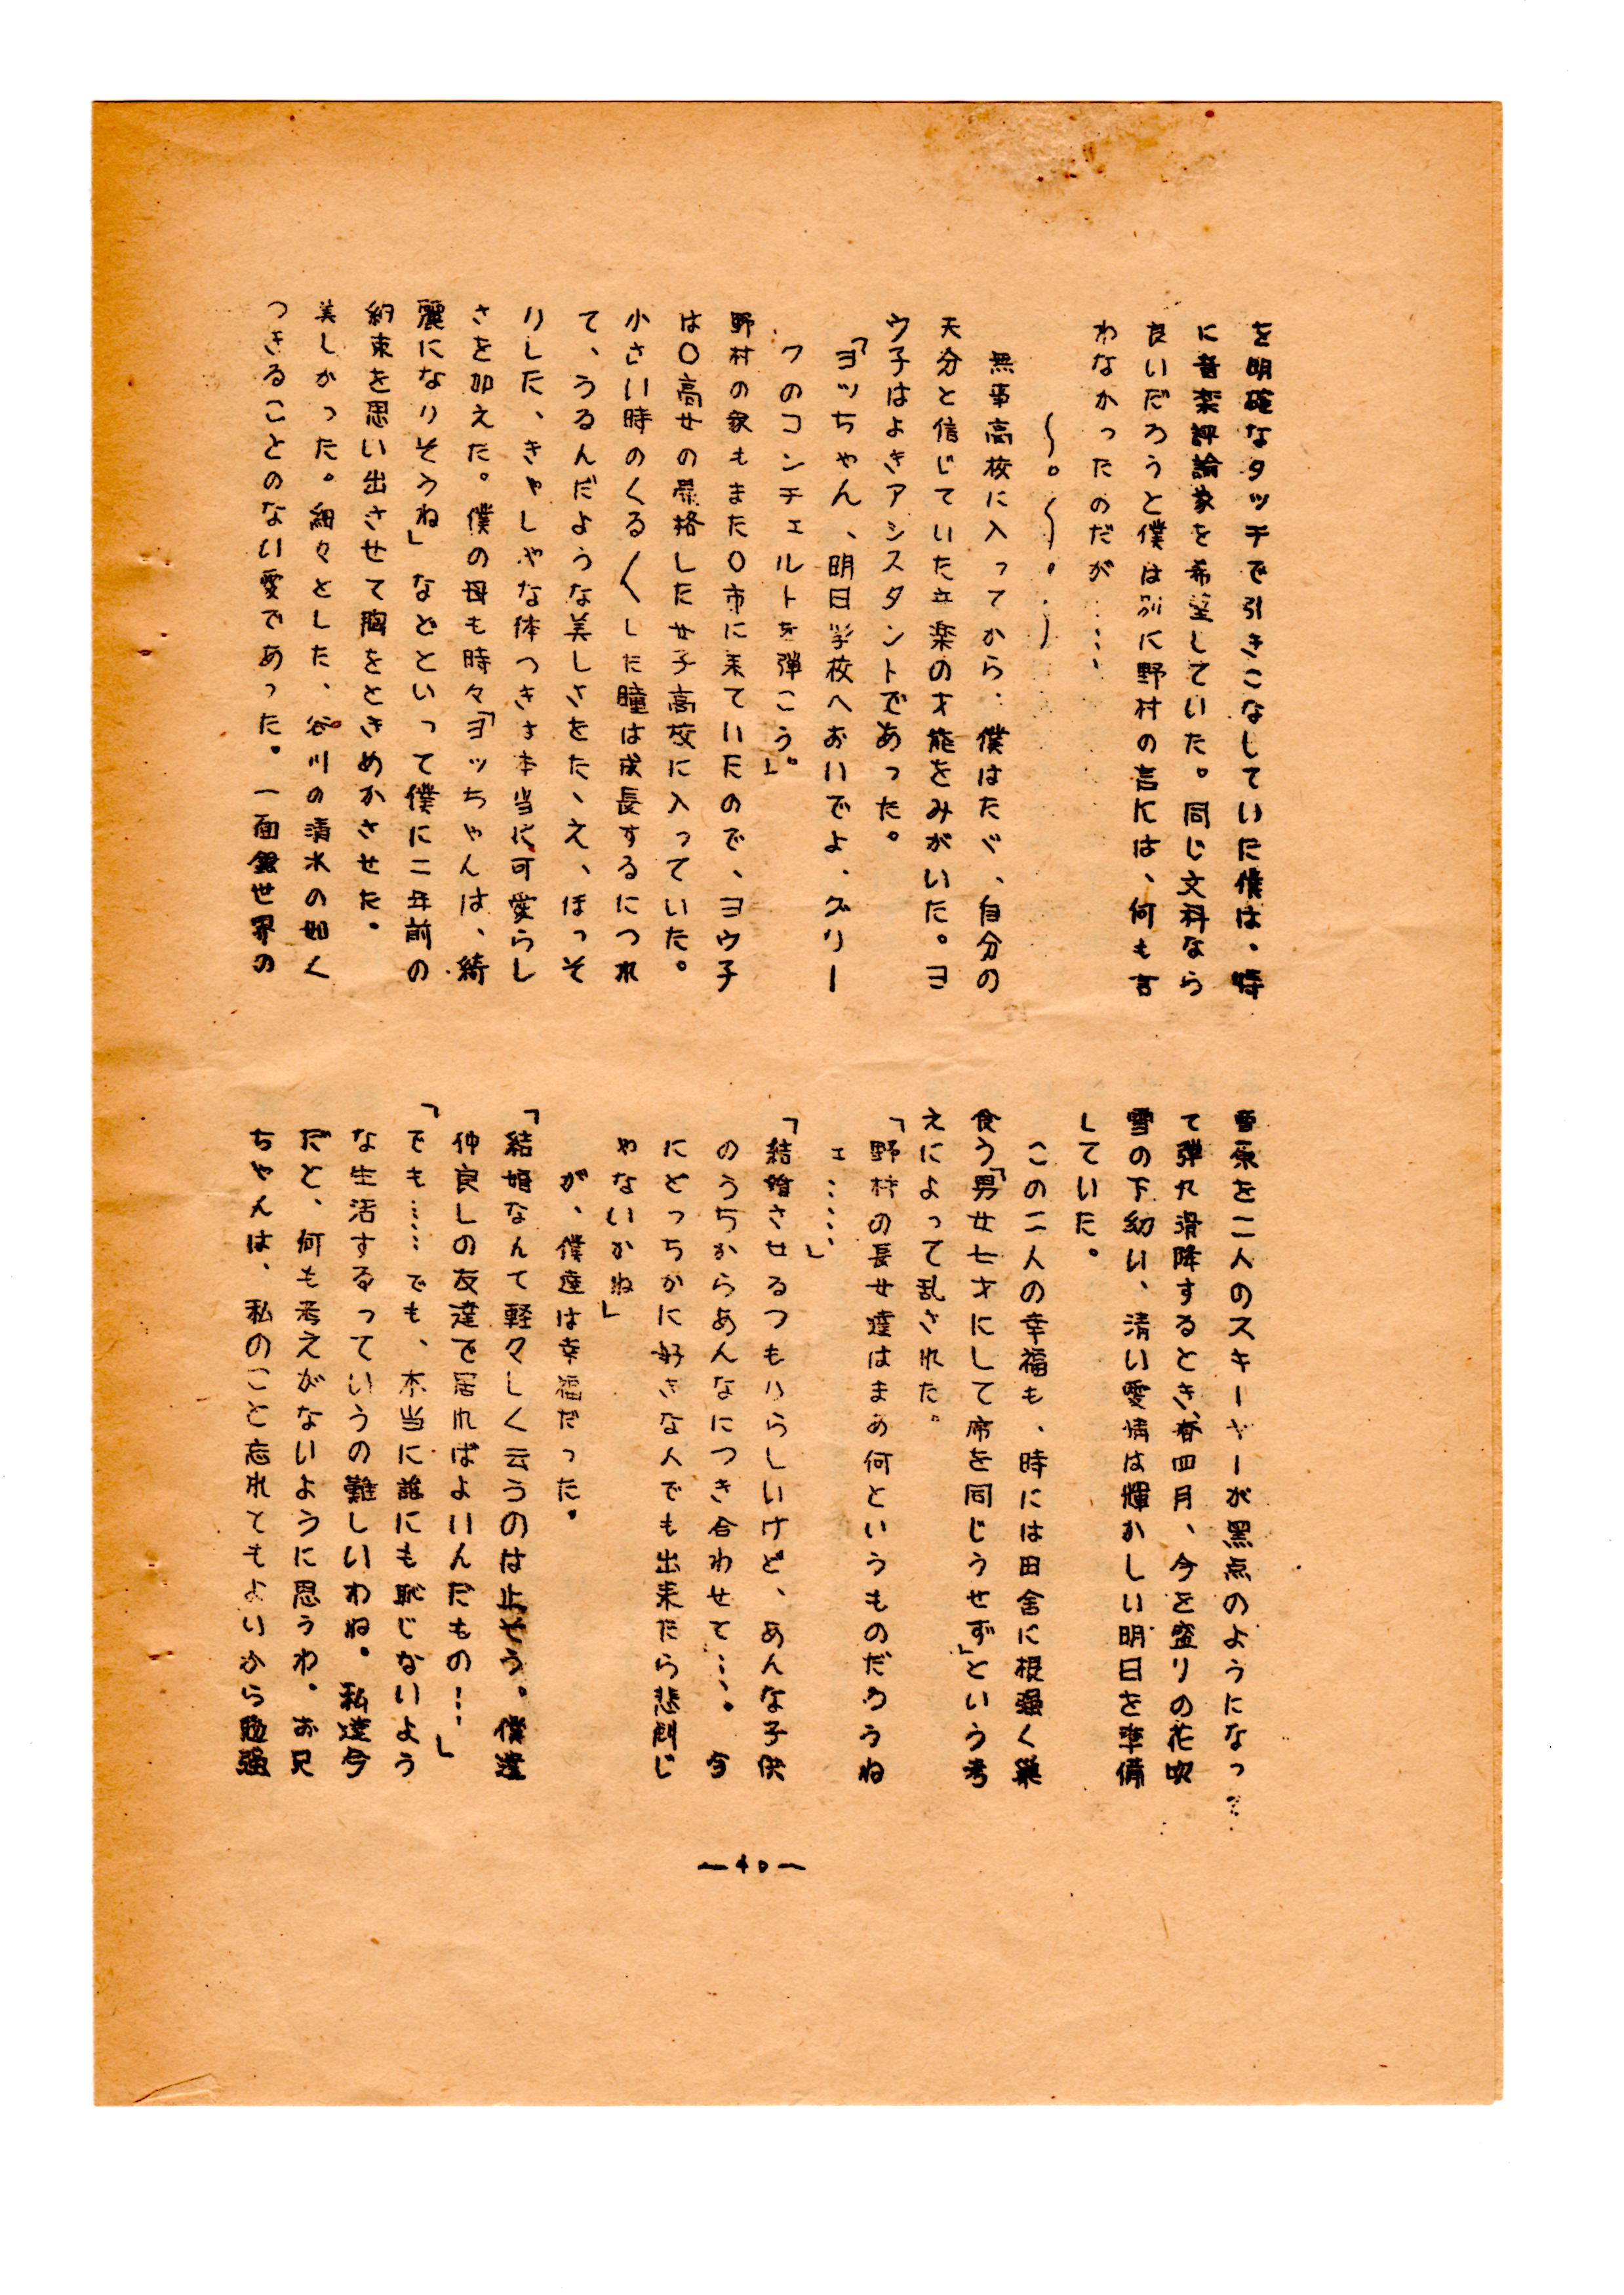 を明確なタッチで引きこなしていた僕は、特
に音楽評論家を希望していた。同じ文科なら
良いだろうと僕は別に野村の言には、何も言
わなかったのだが……
〜。〜。〜
無事高校に入ってから、僕はたゞ、自分の
天分と信じていた音楽の才能をみがいた。ヨ
ウ子はよきアシスタントであった。
「ヨッちゃん、明日学校へおいでよ、グリー
クのコンチェルトを弾こう。」
野村の家もまた〇市に来ていたので、ヨウ子
は〇高女の昇格した女子高校に入っていた。
小さい時のくる〱した瞳は成長するにつれ
て、うるんだような美しさをたゝえ、ほっそ
りした、きゃしゃな体つきは本当に可愛らし
さを加えた。僕の母も時々「ヨッちゃんは、綺
麗になりそうね」などといって僕に二年前の
約束を思い出させて胸をときめかさせた。
美しかった。細々とした、谷川の清水の如く
つきることのない愛であった。一面銀世界の
雪原を二人のスキーヤーが黒点のようになっ
て弾丸滑降するとき、春四月、今を盛りの花吹
雪の下幼い、清い愛情は輝かしい明日を準備
していた。
この二人の幸福も、時には田舎に根強く巣
食う「男女七才にして席を同じうせず」という考
えによって乱された。
「野村の長女達はまあ何というものだろうね
ェ……」
「結婚させるつもりらしいけど、あんな子供
のうちからあんなにつき合わせて…。今
にどっちかに好きな人でも出来たら悲劇じ
ゃないかね」
が、僕達は幸福だった。
「結婚なんて軽々しく云うのは止そう。僕達
仲良しの友達で居ればよいんだもの…」
「でも……でも、本当に誰にも恥じないよう
な生活するっていうの難しいわね。私達今
だと、何も考えがないように思うわ。お兄
ちゃんは、私のこと忘れてもよいから勉強
—40—